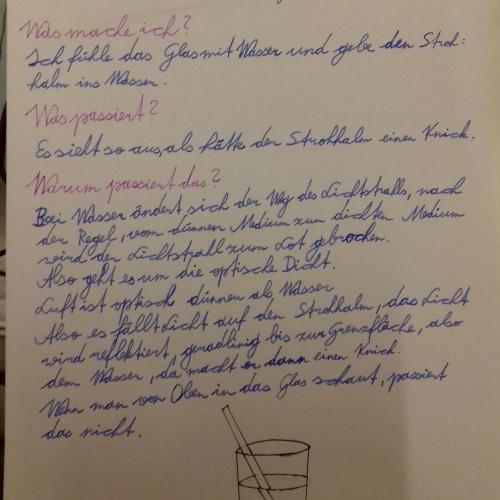 Was mache ich?
Ich fühle das Glas mit Wasser und gebe den Stroh:
halm ins Wasser.
Was passiert?
Es sieht so aus, als hätte der Strohhalm einen Knick.
Warum passiert das?
Bei Wasser ändert sich der Weg des Lichtstrahls, nach
der Regel, vom dünnen Medium zum dichten Medium
wird der Lichtstrahl zum Lot gebrochen.
Also geht es um die optische Dicht.
Luft ist optische dünner als Wasser
Also es fällt Licht auf den Strohhalm, das Licht
wird reflektiert, geradlinig bis zur Grenzfläche, also
dem Wasser, da macht er dann einen Knick.
Wenn man von Oben in das Glas schaut, passiert
das nicht.